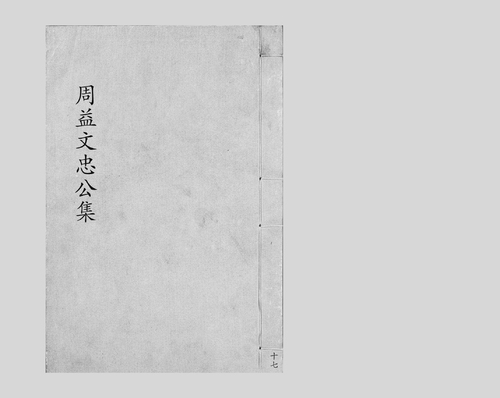 周益文忠公集
十七